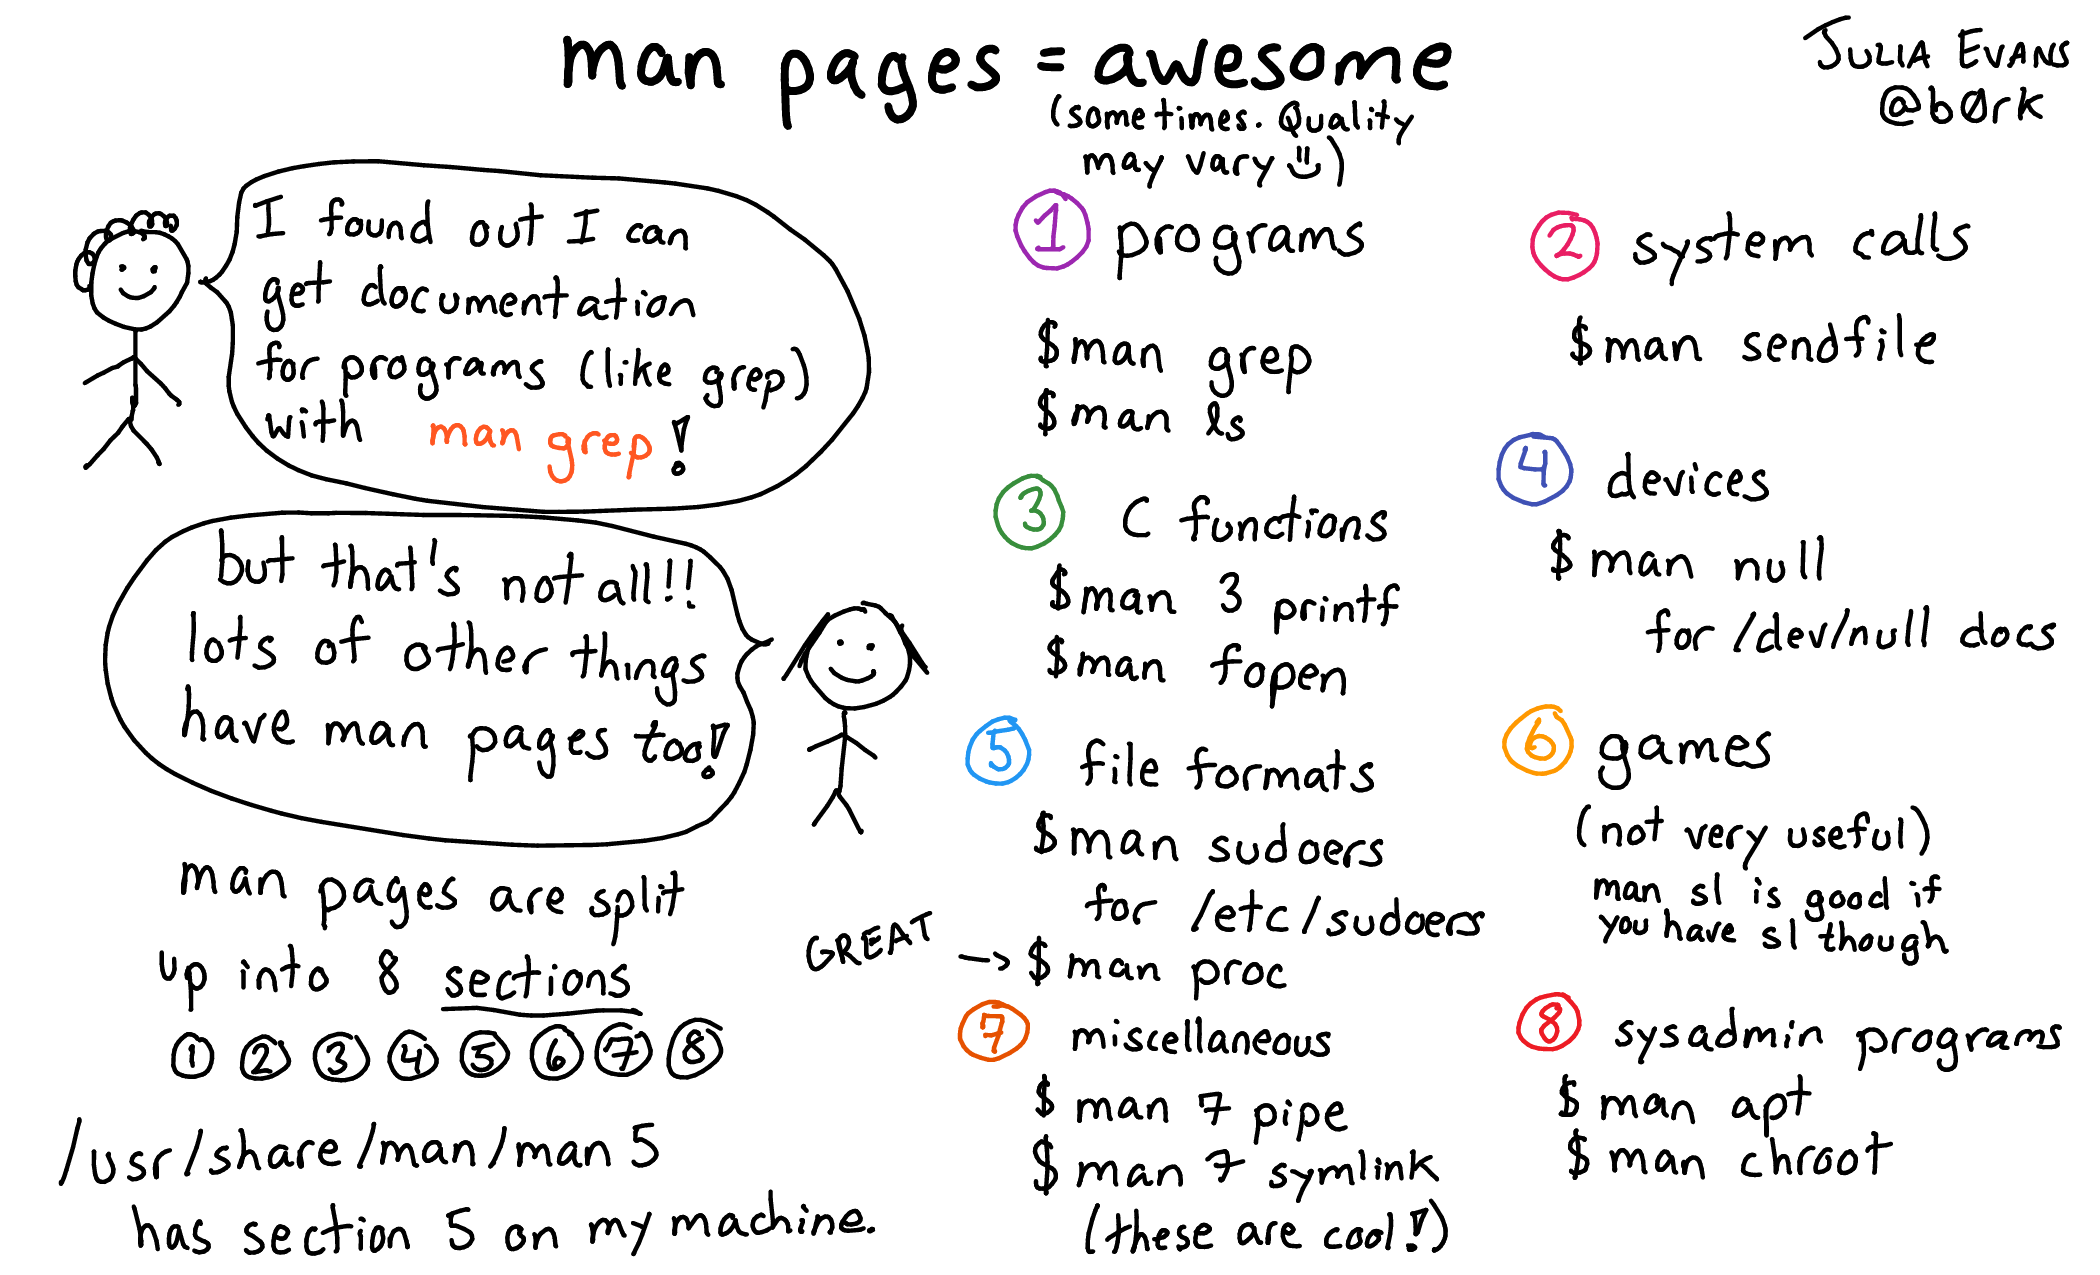 man pages = awesome
(sometimes. Quality
may vary)
JULIA EVANS
@b0rk
I found out I can
get documentation
for programs (like grep)
with man grep!
but that's not all!!
lots of other things
have man pages too!
man pages are split
up into 8 sections
1 2 3 4 5 6 7 8
/usr/share/man/man5
has section 5 on my machine.
1 programs
$ man grep
$ man ls
2 system calls
$ man sendfile
3 C functions
$ man 3 printf
$ man fopen
4 devices
$ man null
for /dev/null docs
5 file formats
$ man sudoers
for /etc/sudoers
GREAT → $ man proc
6 games
(not very useful)
man sl is good if
you have sl though
7 miscellaneous
$ man 7 pipe
$ man 7 symlink
(these are cool!)
8 sysadmin programs
$ man apt
$ man chroot